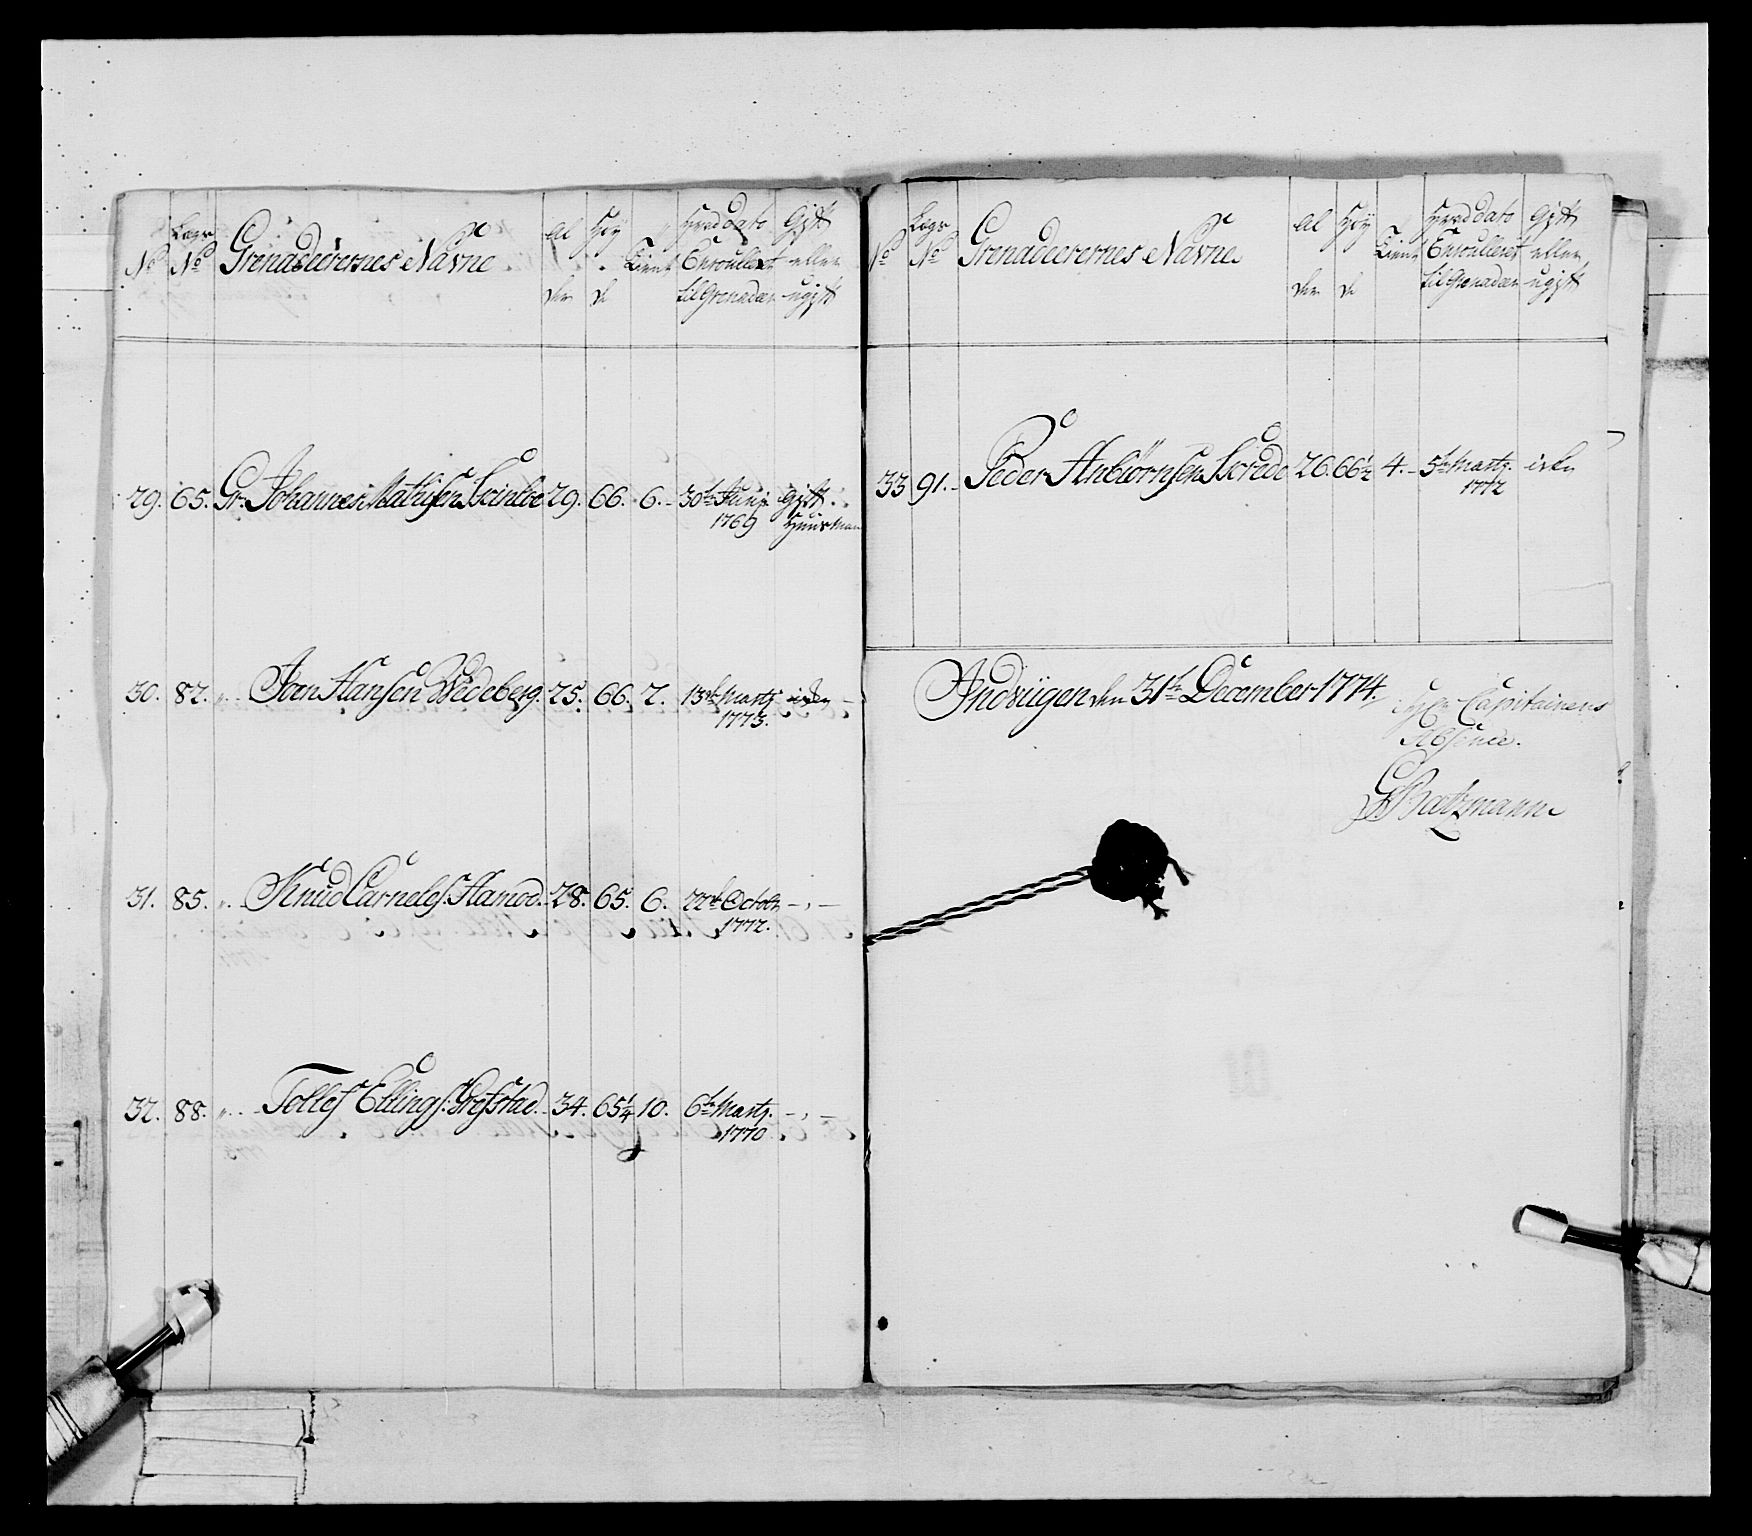 No Lægs No Grenadeerernes Navne Al der Høy de Tient Hvad dato Enroullert til Grenadeer Gift eller ugift
29. 65. Gr. Johannes Mathisen 29. 66. 6. 30te Junij 1769 Gift Huusmand
30. 82. " Joen Hansen Wedeberg. 25. 66. 2. 13de Martj 1773. icke
31. 85. " Knud Carneles. Hamod. 28. 65. 6. 22de Octobr 1772. -,-
32. 88. " Tollef Ellings. Grefstad. 34. 65 1/4 10. 6te Martj. 1770. -,-
No Lægs No Grenadeerernes Navne Al der Høy de Tient Hvad dato Enroullert til Grenadeer Gift eller ugift
33 91. Peder Anbiørnsen 26. 66 1/2 4. 5te Martj. 1772 icke
den 31te December 1774.
Hr Capitainens
Absence.